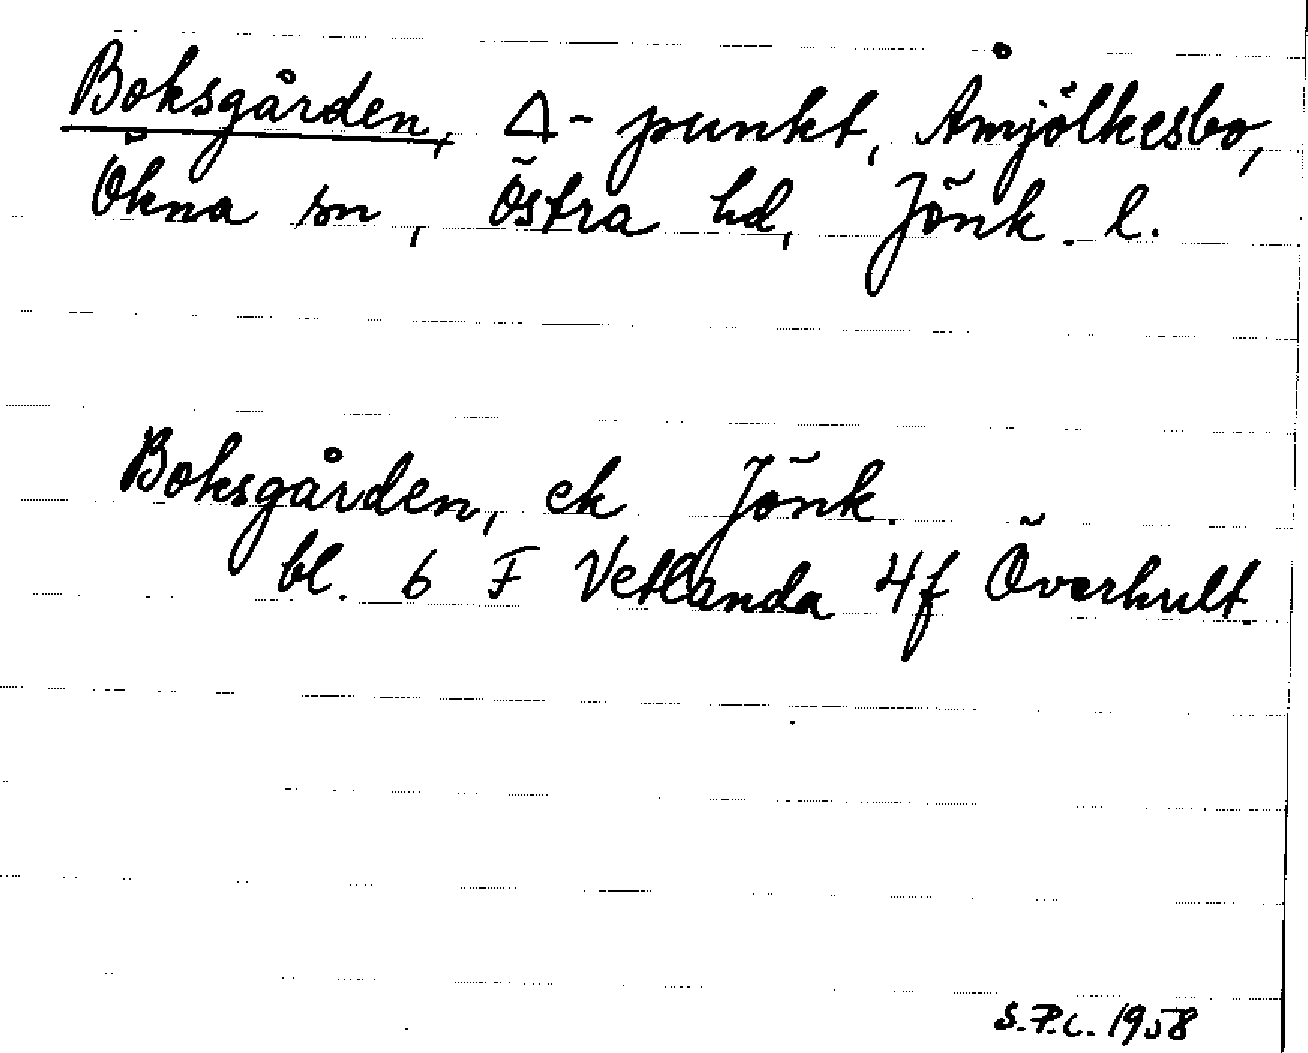 Boksgården, Δ-punkt, Åmjölkesbo,
Ökna sn, Östra hd, Jönk. l.
Boksgården, ek Jönk.
bl. 6 F Vetlanda 4f Överhult.
S.P.C. 1958